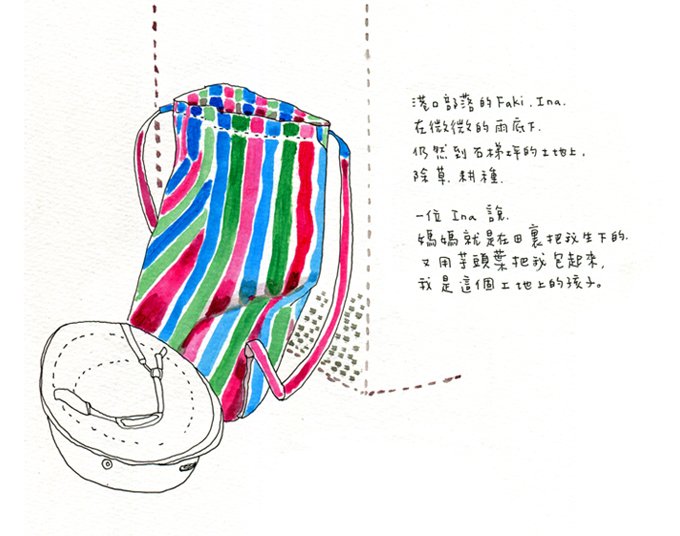 港口部落的 Faki、Ina.
在微微的雨底下.
仍然到石梯坪的土地上,
除草.耕種.
一位 Ina 說.
媽媽就是在田裏把我生下的.
又用芋頭葉把我包起來,
我是這個土地上的孩子。